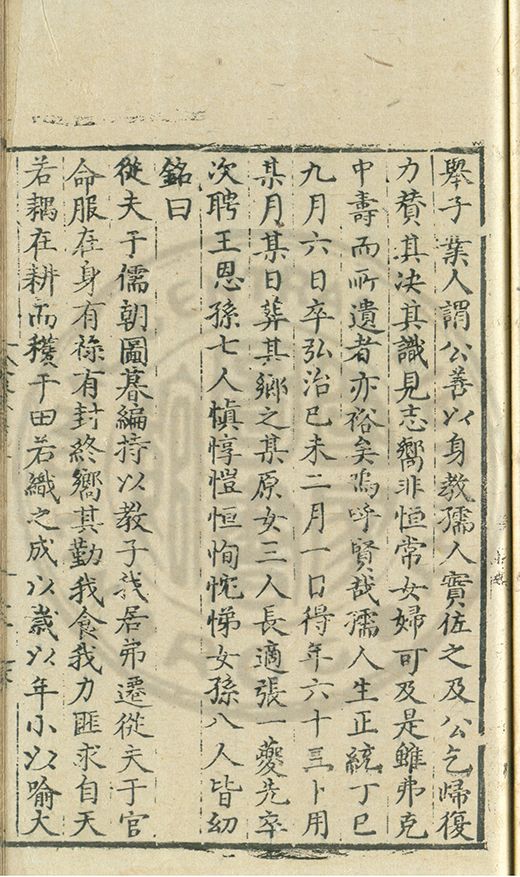 舉子業人謂公善以身教孺人實佐之及公乞歸復
力賛其决其識見志嚮非恒常女婦可及是雖弗克
中壽而所遺者亦裕矣嗚呼賢哉孺人生正統丁巳
九月六日卒弘治己未二月一日得年六十三卜用
某月某日葬其鄉之某原女三人長適張一夔先卒
次聘王恩孫七人慎惇愷恒恂忱悌女孫八人皆幼
銘曰
從夫于儒朝圖暮編持以教子我居弗遷從夫于官
命服在身有祿有封終嚮其勤我食我力匪求自天
若耦在耕而穫于田若織之成以歲以年小以喻大